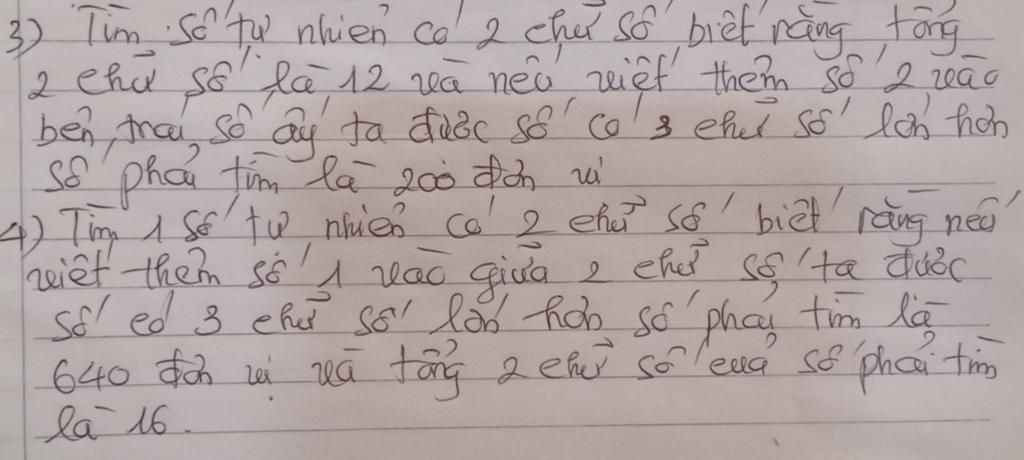 3) Tìm số tự nhiên có 2 chữ số biết rằng tổng
2 chữ số là 12 và nếu viết thêm số 2 vào
bên trái số ấy ta được số có 3 chữ số lớn hơn
số phải tìm là 200 đơn vị
4) Tìm 1 số tự nhiên có 2 chữ số biết rằng nếu
viết thêm số 1 vào giữa 2 chữ số ta được
số có 3 chữ số lớn hơn số phải tìm là
640 đơn vị và tổng 2 chữ số của số phải tìm
là 16.